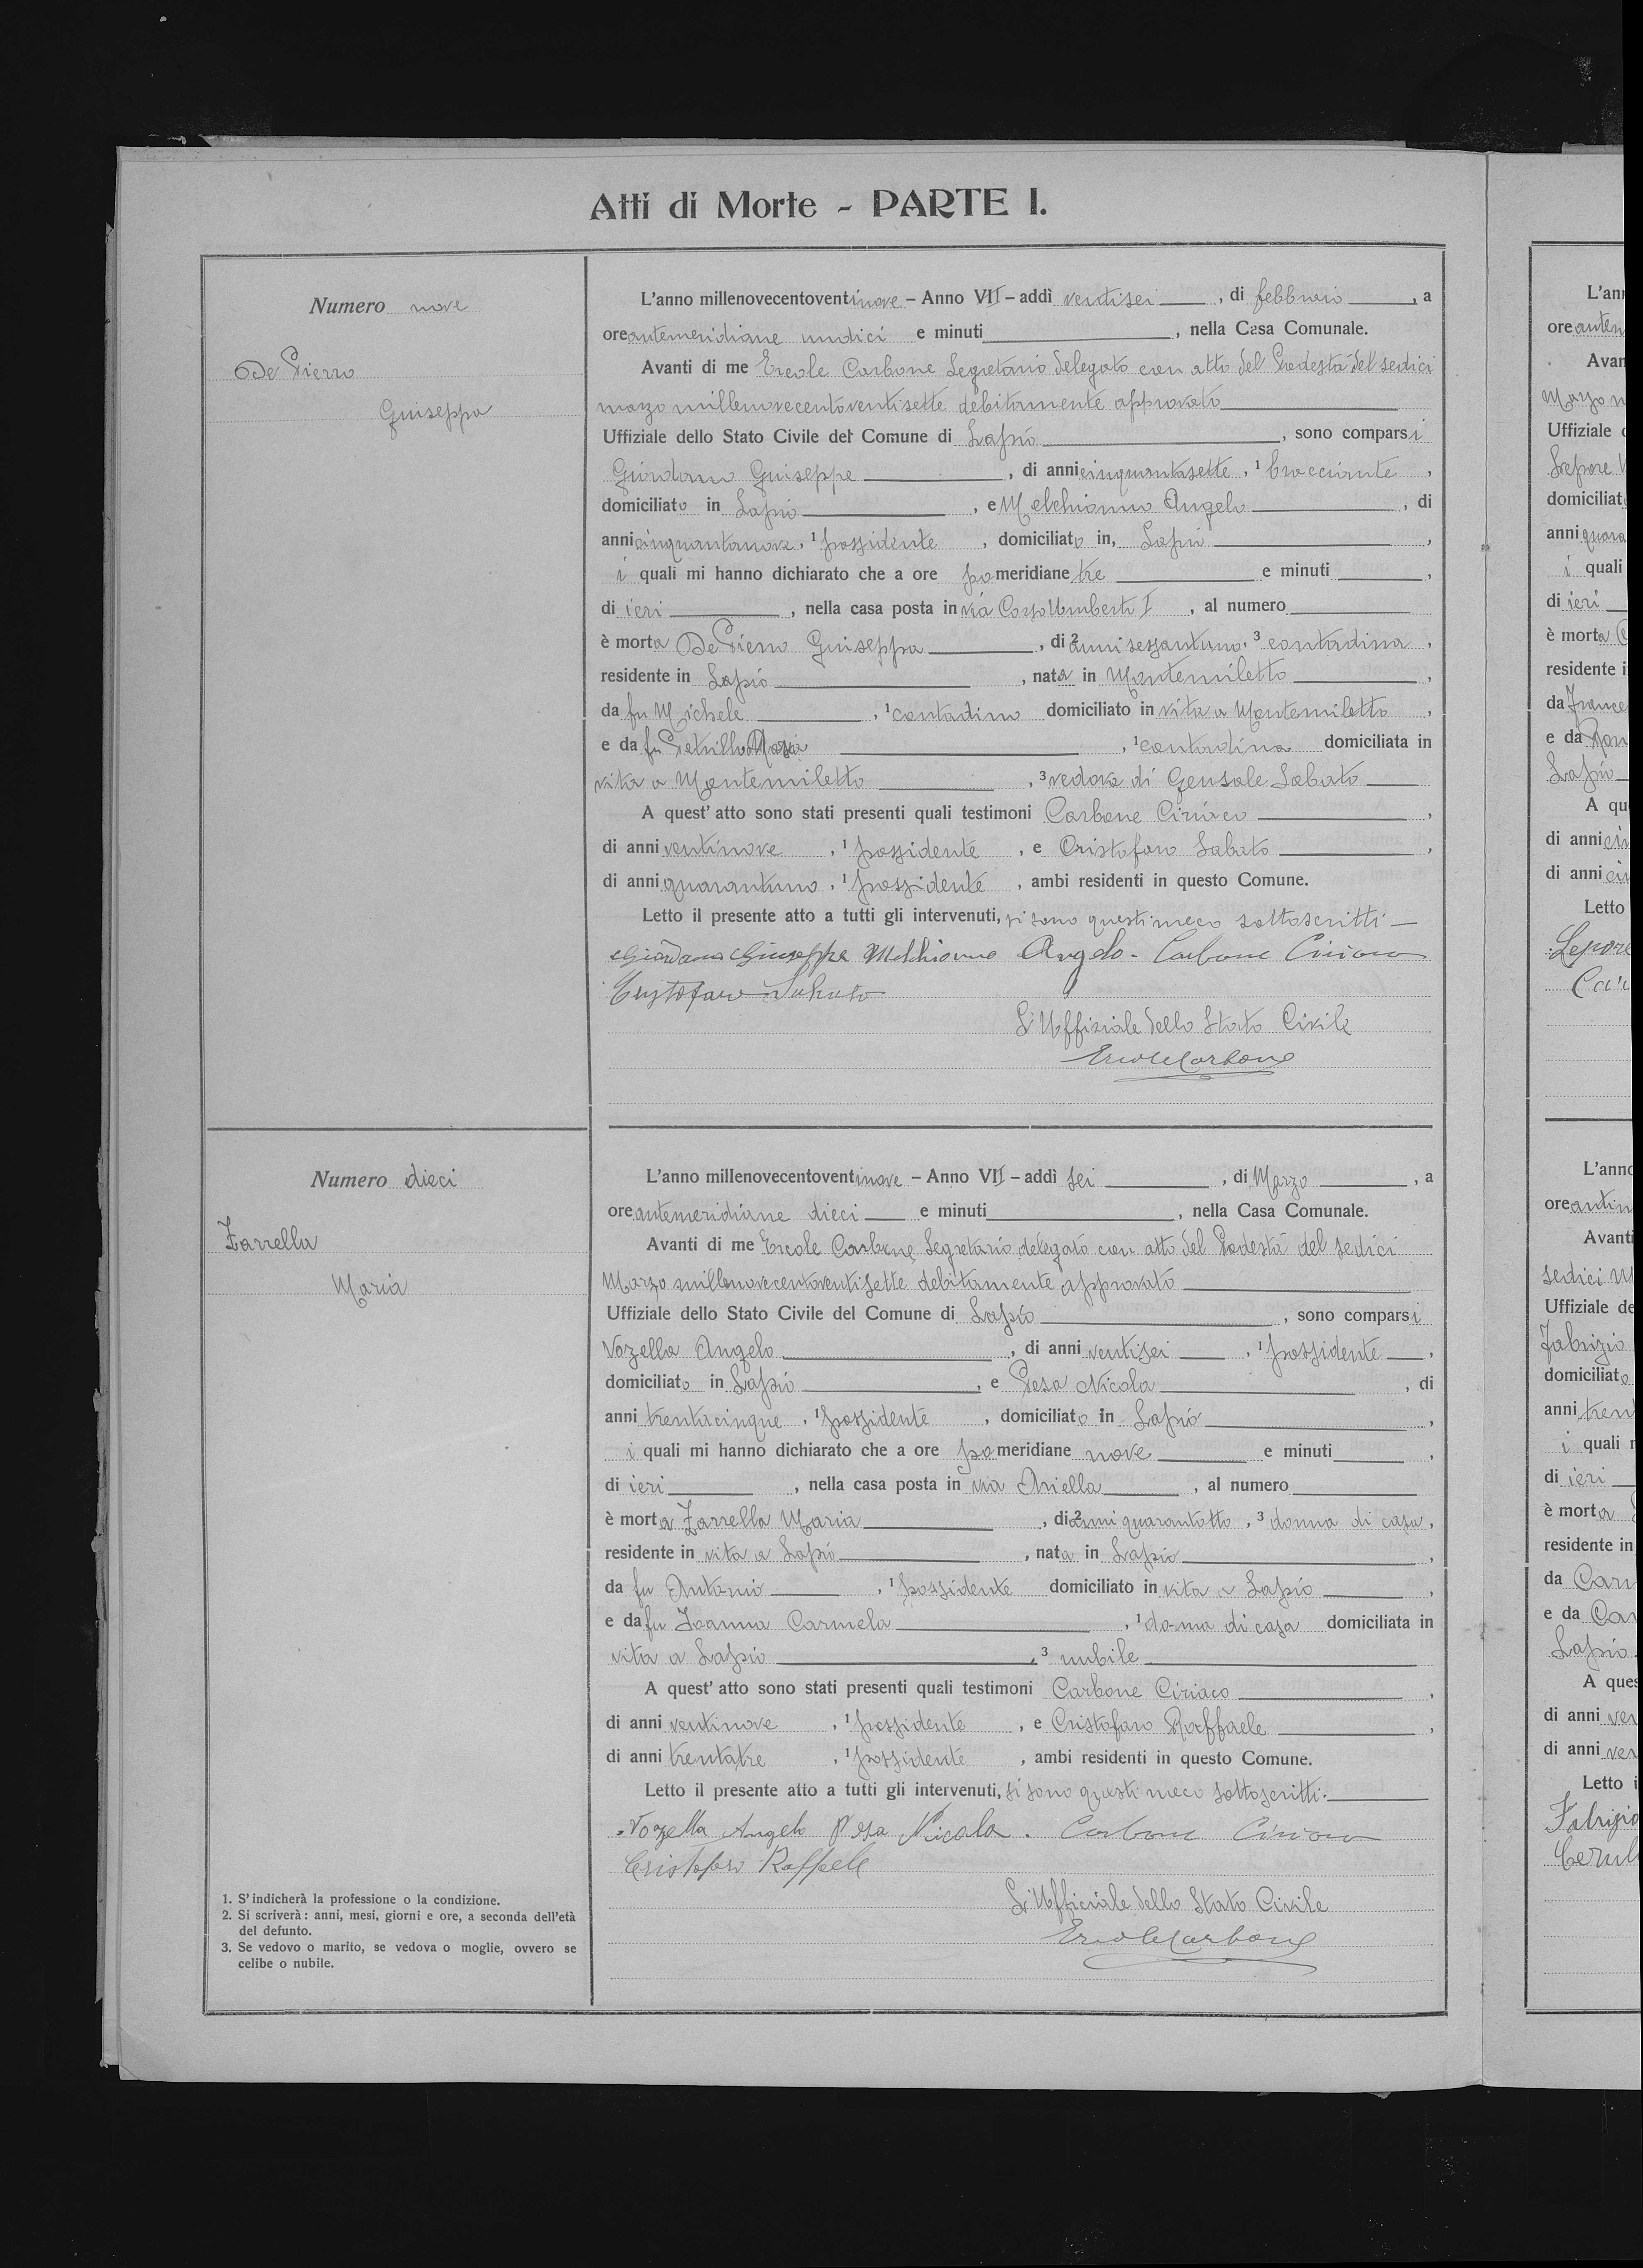 Atti di Morte - PARTE I.
Numero nove
De Pierro
Giuseppa
L'anno millenovecentoventinove - Anno VII - addì ventisei, di febbraio, a
ore antemeridiane undici e minuti, nella Casa Comunale.
Avanti di me Ercole Carbone Segretario delegato con atto del Podestà del sedici
marzo millenovecentoventisette debitamente approvato
Uffiziale dello Stato Civile del Comune di Lapio, sono comparsi
Giordano Giuseppe, di anni cinquantasette, 1 bracciante,
domiciliato in Lapio, e Melchionno Angelo, di
anni cinquantanove, 1 possidente, domiciliato in, Lapio,
i quali mi hanno dichiarato che a ore pomeridiane tre e minuti,
di ieri, nella casa posta in via Corso Umberto I, al numero
è morta De Pierro Giuseppa, di 2 anni sessantuno, 3 contadina,
residente in Lapio, nata in Montemiletto,
da fu Michele, 1 contadino domiciliato in vita a Montemiletto,
e da fu Petrillo, 1 contadina domiciliata in
vita a Montemiletto, 3 vedova di Gensale Sabato
A quest' atto sono stati presenti quali testimoni Carbone Ciriaco,
di anni ventinove, 1 possidente, e Cristofaro Sabato,
di anni quarantuno, 1 possidente, ambi residenti in questo Comune.
Letto il presente atto a tutti gli intervenuti, si sono questi meco sottoscritti
Giordano Giuseppe Melchionno Angelo - Carbone Ciriaco
Cristofaro Sabato
L'Uffiziale dello Stato Civile
Ercole Carbone
Numero dieci
Zarrella
Maria
L'anno millenovecentoventinove - Anno VII - addì sei, di Marzo, a
ore antemeridiane dieci e minuti, nella Casa Comunale.
Avanti di me Ercole Carbone, Segretario delegato con atto del Podestà del sedici
Marzo millenovecentoventisette debitamente approvato
Uffiziale dello Stato Civile del Comune di Lapio, sono comparsi
Vozella Angelo, di anni ventisei, 1 possidente,
domiciliato in Lapio, e Pesa Nicola, di
anni trentacinque, 1 possidente, domiciliato in Lapio,
i quali mi hanno dichiarato che a ore pomeridiane nove e minuti,
di ieri, nella casa posta in via Ariella, al numero
è morta Zarrella Maria, di 2 anni quarantotto, 3 donna di casa,
residente in vita a Lapio, nata in Lapio,
da fu Antonio, 1 possidente domiciliato in vita a Lapio,
e da fu Ioanna Carmela, 1 donna di casa domiciliata in
vita a Lapio, 3 nubile
A quest' atto sono stati presenti quali testimoni Carbone Ciriaco,
di anni ventinove, 1 possidente, e Cristofaro Raffaele,
di anni trentatre, 1 possidente, ambi residenti in questo Comune.
Letto il presente atto a tutti gli intervenuti, si sono questi meco sottoscritti.
Vozella Angelo Pesa Nicola. Carbone Ciriaco
Cristofaro Raffaele
L'Ufficiale dello Stato Civile
Ercole Carbone
1. S'indicherà la professione o la condizione.
2. Si scriverà: anni, mesi, giorni e ore, a seconda dell'età
del defunto.
3. Se vedovo o marito, se vedova o moglie, ovvero se
celibe o nubile.